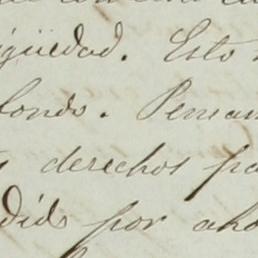 igüedad. Esto
fondo. Pensam
derechos pa
dido por aho